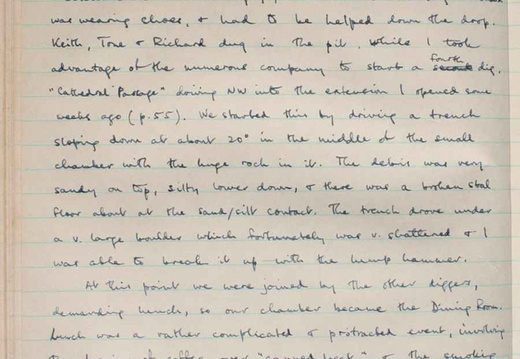 was wearing shoes, & had to be helped down the drop.
Keith, Tone & Richard dug in the pit, while I took
advantage of the numerous company to start a fourth dig,
"Cathedral Passage" driving NW into the extension I opened some
weeks ago (p.55). We started this by driving a trench
sloping down at about 20° in the middle of the small
chamber with the huge rock in it. The debris was very
sandy on top, silty lower down, & there was a broken stal
floor about at the sand/silt contact. The trench drove under
a v. large boulder which fortunately was v. shattered & I
was able to break it up with the lump hammer.
At this point we were joined by the other diggers,
demanding lunch, so our chamber became the Dining Room.
Lunch was a rather complicated & protracted event, involving
of coffee over "canned heat" & the smoking